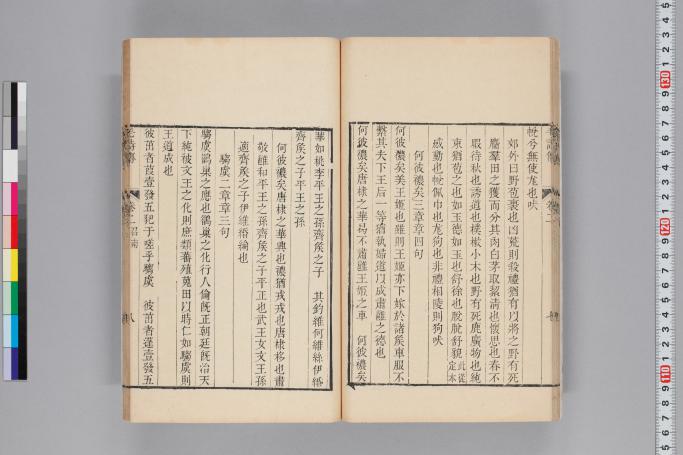 帨兮無使尨也吠
郊外曰野苞裹也凶荒則殺禮猶有以將之野有死
麕羣田之獲而分其肉白茅取絜清也懷思也春不
暇待秋也誘道也樸樕小木也野有死鹿廣物也純
束猶苞之也如玉德如玉也舒徐也脫脫舒貌此從定本
感動也帨佩巾也尨狗也非禮相陵則狗吠
何彼襛矣三章章四句
何彼襛矣美王姬也雖則王姬亦下嫁於諸矦車服不
繫其夫下王后一等猶執婦道以成肅雝之德也
何彼襛矣唐棣之華曷不肅雝王姬之車　何彼襛矣
華如桃李平王之孫齊矦之子　其釣維何維絲伊緡
齊矦之子平王之孫
何彼襛矣唐棣之華興也襛猶戎戎也唐棣栘也肅
敬雝和平王之孫齊矦之子平正也武王女文王孫
適齊矦之子伊維緡綸也
騶虞二章章三句
騶虞鵲巢之應也鵲巢之化行人倫旣正朝廷旣治天
下純被文王之化則庶類蕃殖蒐田以時仁如騶虞則
王道成也
彼茁者葭壹發五豝于嗟乎騶虞　彼茁者蓬壹發五
召南
八